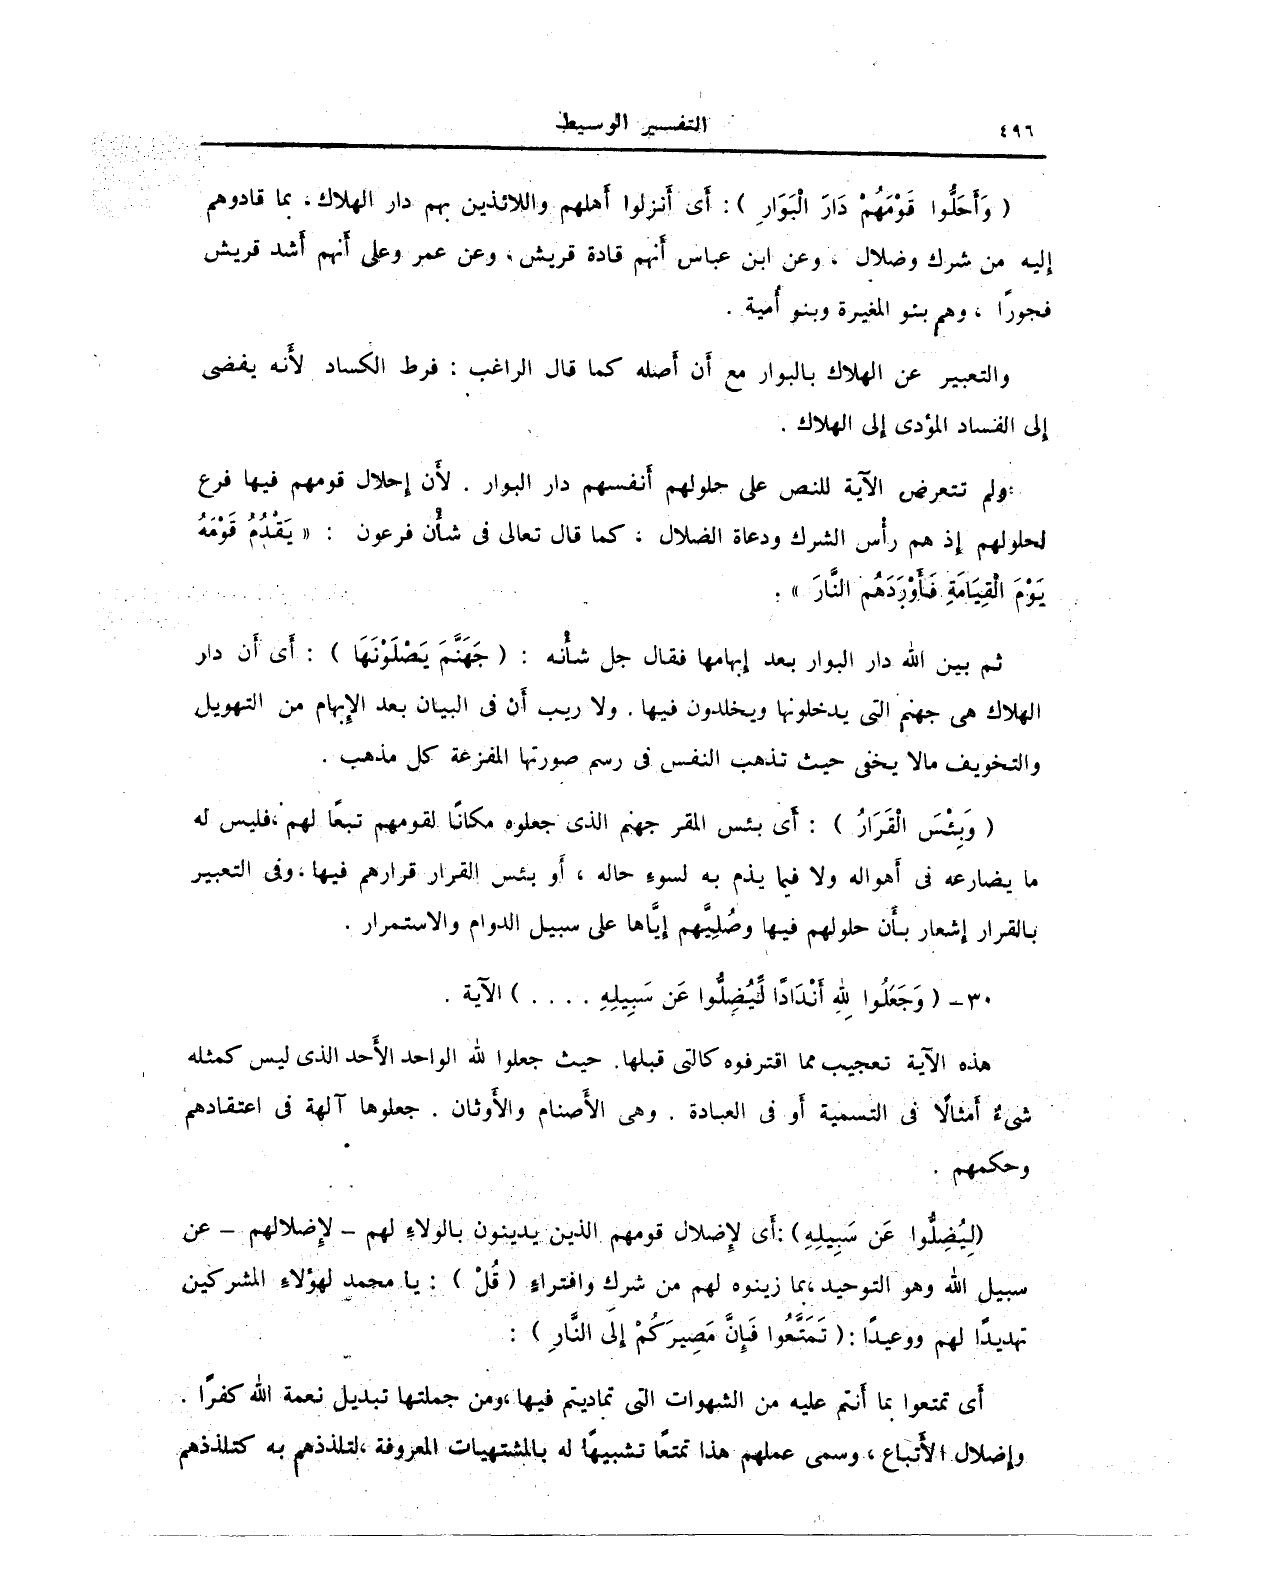 ٤٩٦
التفسير الوسيط
( وَأَحَلُّوا قَوْمَهُمْ دَارَ الْبَوَارِ ) : أَى أَنزلوا أَهلهم واللائذين بهم دار الهلاك ، بما قادوهم
إليه من شرك وضلال ، وعن ابن عباس أَنهم قادة قريش ، وعن عمر وعلى أَنهم أَشد قريش
فجورًا ، وهم بنو المغيرة وبنو أُمية .
والتعبير عن الهلاك بالبوار مع أَن أَصله كما قال الراغب : فرط الكساد لأَنه يفضى
إلى الفساد المؤدى إلى الهلاك .
ولم تتعرض الآية للنص على حلولهم أَنفسهم دار البوار . لأَن إحلال قومهم فيها فرع
لحلولهم إذ هم رأْس الشرك ودعاة الضلال ، كما قال تعالى فى شأْن فرعون : « يَقْدُمُ قَوْمَهُ
يَوْمَ الْقِيَامَةِ فَأَوْرَدَهُم النَّارَ » .
ثم بين الله دار البوار بعد إبهامها فقال جل شأْنه : ( جَهَنَّمَ يَصْلَوْنَهَا ) : أَى أَن دار
الهلاك هى جهنم التى يدخلونها ويخلدون فيها . ولا ريب أَن فى البيان بعد الإِبهام من التهويل
والتخويف مالا يخفى حيث تذهب النفس فى رسم صورتها المفزعة كل مذهب .
( وَبِئْسَ الْقَرَارُ ) : أَى بئس المقر جهنم الذى جعلوه مكانًا لقومهم تبعًا لهم ، فليس له
ما يضارعه فى أهواله ولا فيما يذم به لسوءِ حاله ، أَو بئس القرار قرارهم فيها ، وفى التعبير
بالقرار إشعار بأَن حلولهم فيها وصُلِيَّهم إيَّاها على سبيل الدوام والاستمرار .
٣٠- ( وَجَعَلُوا لِلهِ أَنْدَادًا لِّيُضِلُّوا عَن سَبِيلِهِ . . . . ) الآية .
هذه الآية تعجيب مما اقترفوه كالتى قبلها . حيث جعلوا لله الواحد الأَحد الذى ليس كمثله
شىءٌ أَمثالًا فى التسمية أَو فى العبادة . وهى الأَصنام والأَوثان . جعلوها آلهة فى اعتقادهم
وحكمهم .
(لِيُضِلُّوا عَن سَبِيلِهِ) : أَى لإِضلال قومهم الذين يدينون بالولاءِ لهم - لإِضلالهم - عن
سبيل الله وهو التوحيد ، بما زينوه لهم من شرك وافتراءٍ ( قُلْ ) : يا محمد لهؤلاءِ المشركين
تهديدًا لهم ووعيدًا : ( تَمَتَّعُوا فَإِنَّ مَصِيرَكُمْ إِلَى النَّارِ ) :
أَى تمتعوا بما أَنتم عليه من الشهوات التى تماديتم فيها ، ومن جملتها تبديل نعمة الله كفرًا .
وإضلال الأَتباع ، وسمى عملهم هذا تمتعًا تشبيهًا له بالمشتهيات المعروفة ، لتلذذهم به كتلذذهم